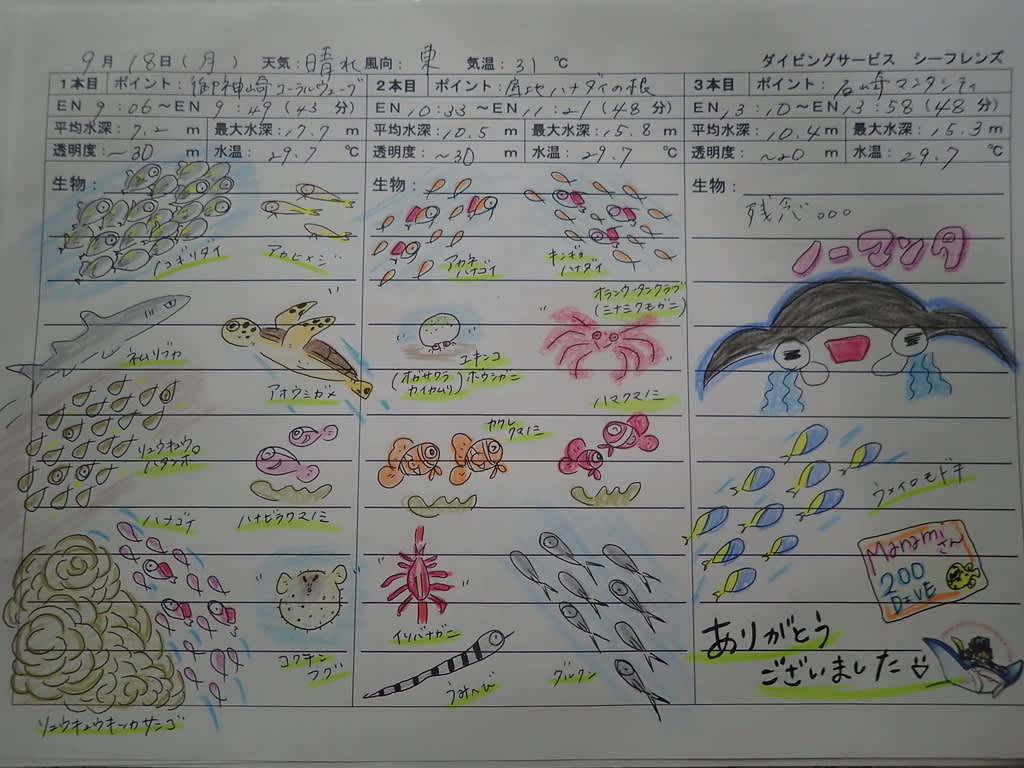 9月18日(月) 天気:晴れ 風向:東 気温:31℃ ダイビングサービス シーフレンズ
1本目 ポイント:御神崎コーラルウェーブ
EN 9:06〜EN 9:49(43分)
平均水深:7.2m 最大水深:17.7m
透明度:〜30m 水温:29.7℃
生物:
ノコギリダイ
アカヒメジ
ネムリブカ
アオウミガメ
リュウキュウ
ハタンポ
ハナゴイ
ハナビラクマノミ
コクテン
フグ
リュウキュウキッカサンゴ
2本目 ポイント:屋比ハナダイの根
EN 10:33〜EN 11:21(48分)
平均水深:10.5m 最大水深:15.8m
透明度:〜30m 水温:29.7℃
生物:
アカネ
ハナゴイ
キンギョ
ハナダイ
オランウータンクラブ
(ミナミクモガニ)
ユキンコ
ボウシガニ
(オガサワラ
カイカムリ)
ハマクマノミ
カクレ
クマノミ
イソバナガニ
うみへび
グルクン
3本目 ポイント:石崎マンタシティ
EN 13:10〜EN 13:58(48分)
平均水深:10.4m 最大水深:15.3m
透明度:〜20m 水温:29.7℃
生物:
残念。。。
ノーマンタ
ウメイロモドキ
Manamiさん
200
DIVE
ありがとう
ございました